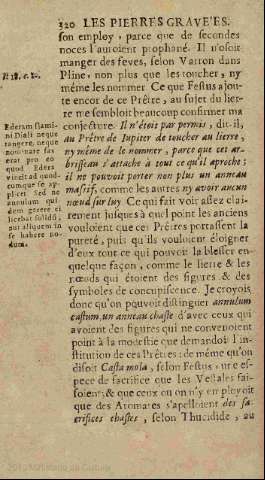 320 LES PIERRES GRAVE'ES.
son employ, parce que de secondes
noces l'auroient prophané. Il n'osoit
manger des feves, selon Varron dans
Pline, non plus que les toucher, ny
même les nommer. Ce que Festus ajou-
te encor de ce Prêtre, au sujet du lier-
re me sembloit beaucoup confirmer ma
conjecture. Il n'étoit pas permis, dit-il,
au Prêtre de Jupiter de toucher au lierre,
ny même de le nommer, parce que cet ar-
brisseau s'attache à tout ce qu'il aproche;
il ne pouvoit porter non plus un anneau
massif, comme les autres ny avoir aucun
nœud sur luy. Ce qui fait voir assez clai-
rement jusques à quel point les anciens
vouloient que ces Prêtres portassent la
pureté, puis qu'ils vouloient éloigner
d'eux tout ce qui pouvoit la blesser en-
quelque façon, comme le lierre & les
nœuds qui étoient des figures & des
symboles de concupiscence. Je croyois
donc qu'on pouvoit distinguer annulum
castum, un anneau chaste d'avec ceux qui
avoient des figures qui ne convenoient
point à la modestie que demandoi l in-
stitution de ces Prêtres: de même qu'on
disoit Casta mola, selon Festus, ure es-
pece de sacrifice que les Vestales fai-
soient; & que ceux ou on n'y employoit
que des Aromates s'apelloient des sa-
crifices chastes, selon Thucidide, au
Ederam flami-
ni Diali neque
tangere, neque
nominare fas
erat pro eo
quod Edera
vincit ad quod-
cumque se ap-
plicet sed ne
annulum qui-
dem gerere ei
licebat solidũ;
aut aliquem in
se habere no-
dum.